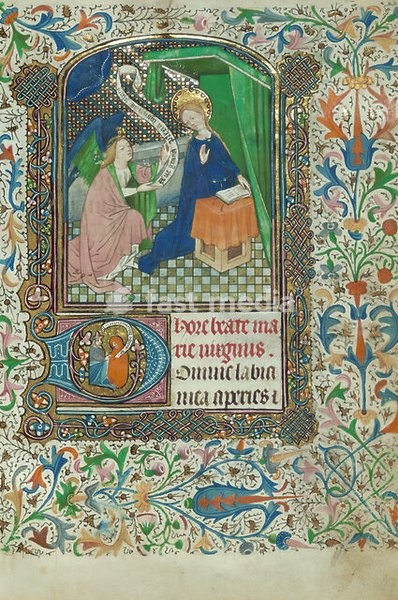 fast media
hore beate ma
rie virginis.
Domine labia
mea aperies i